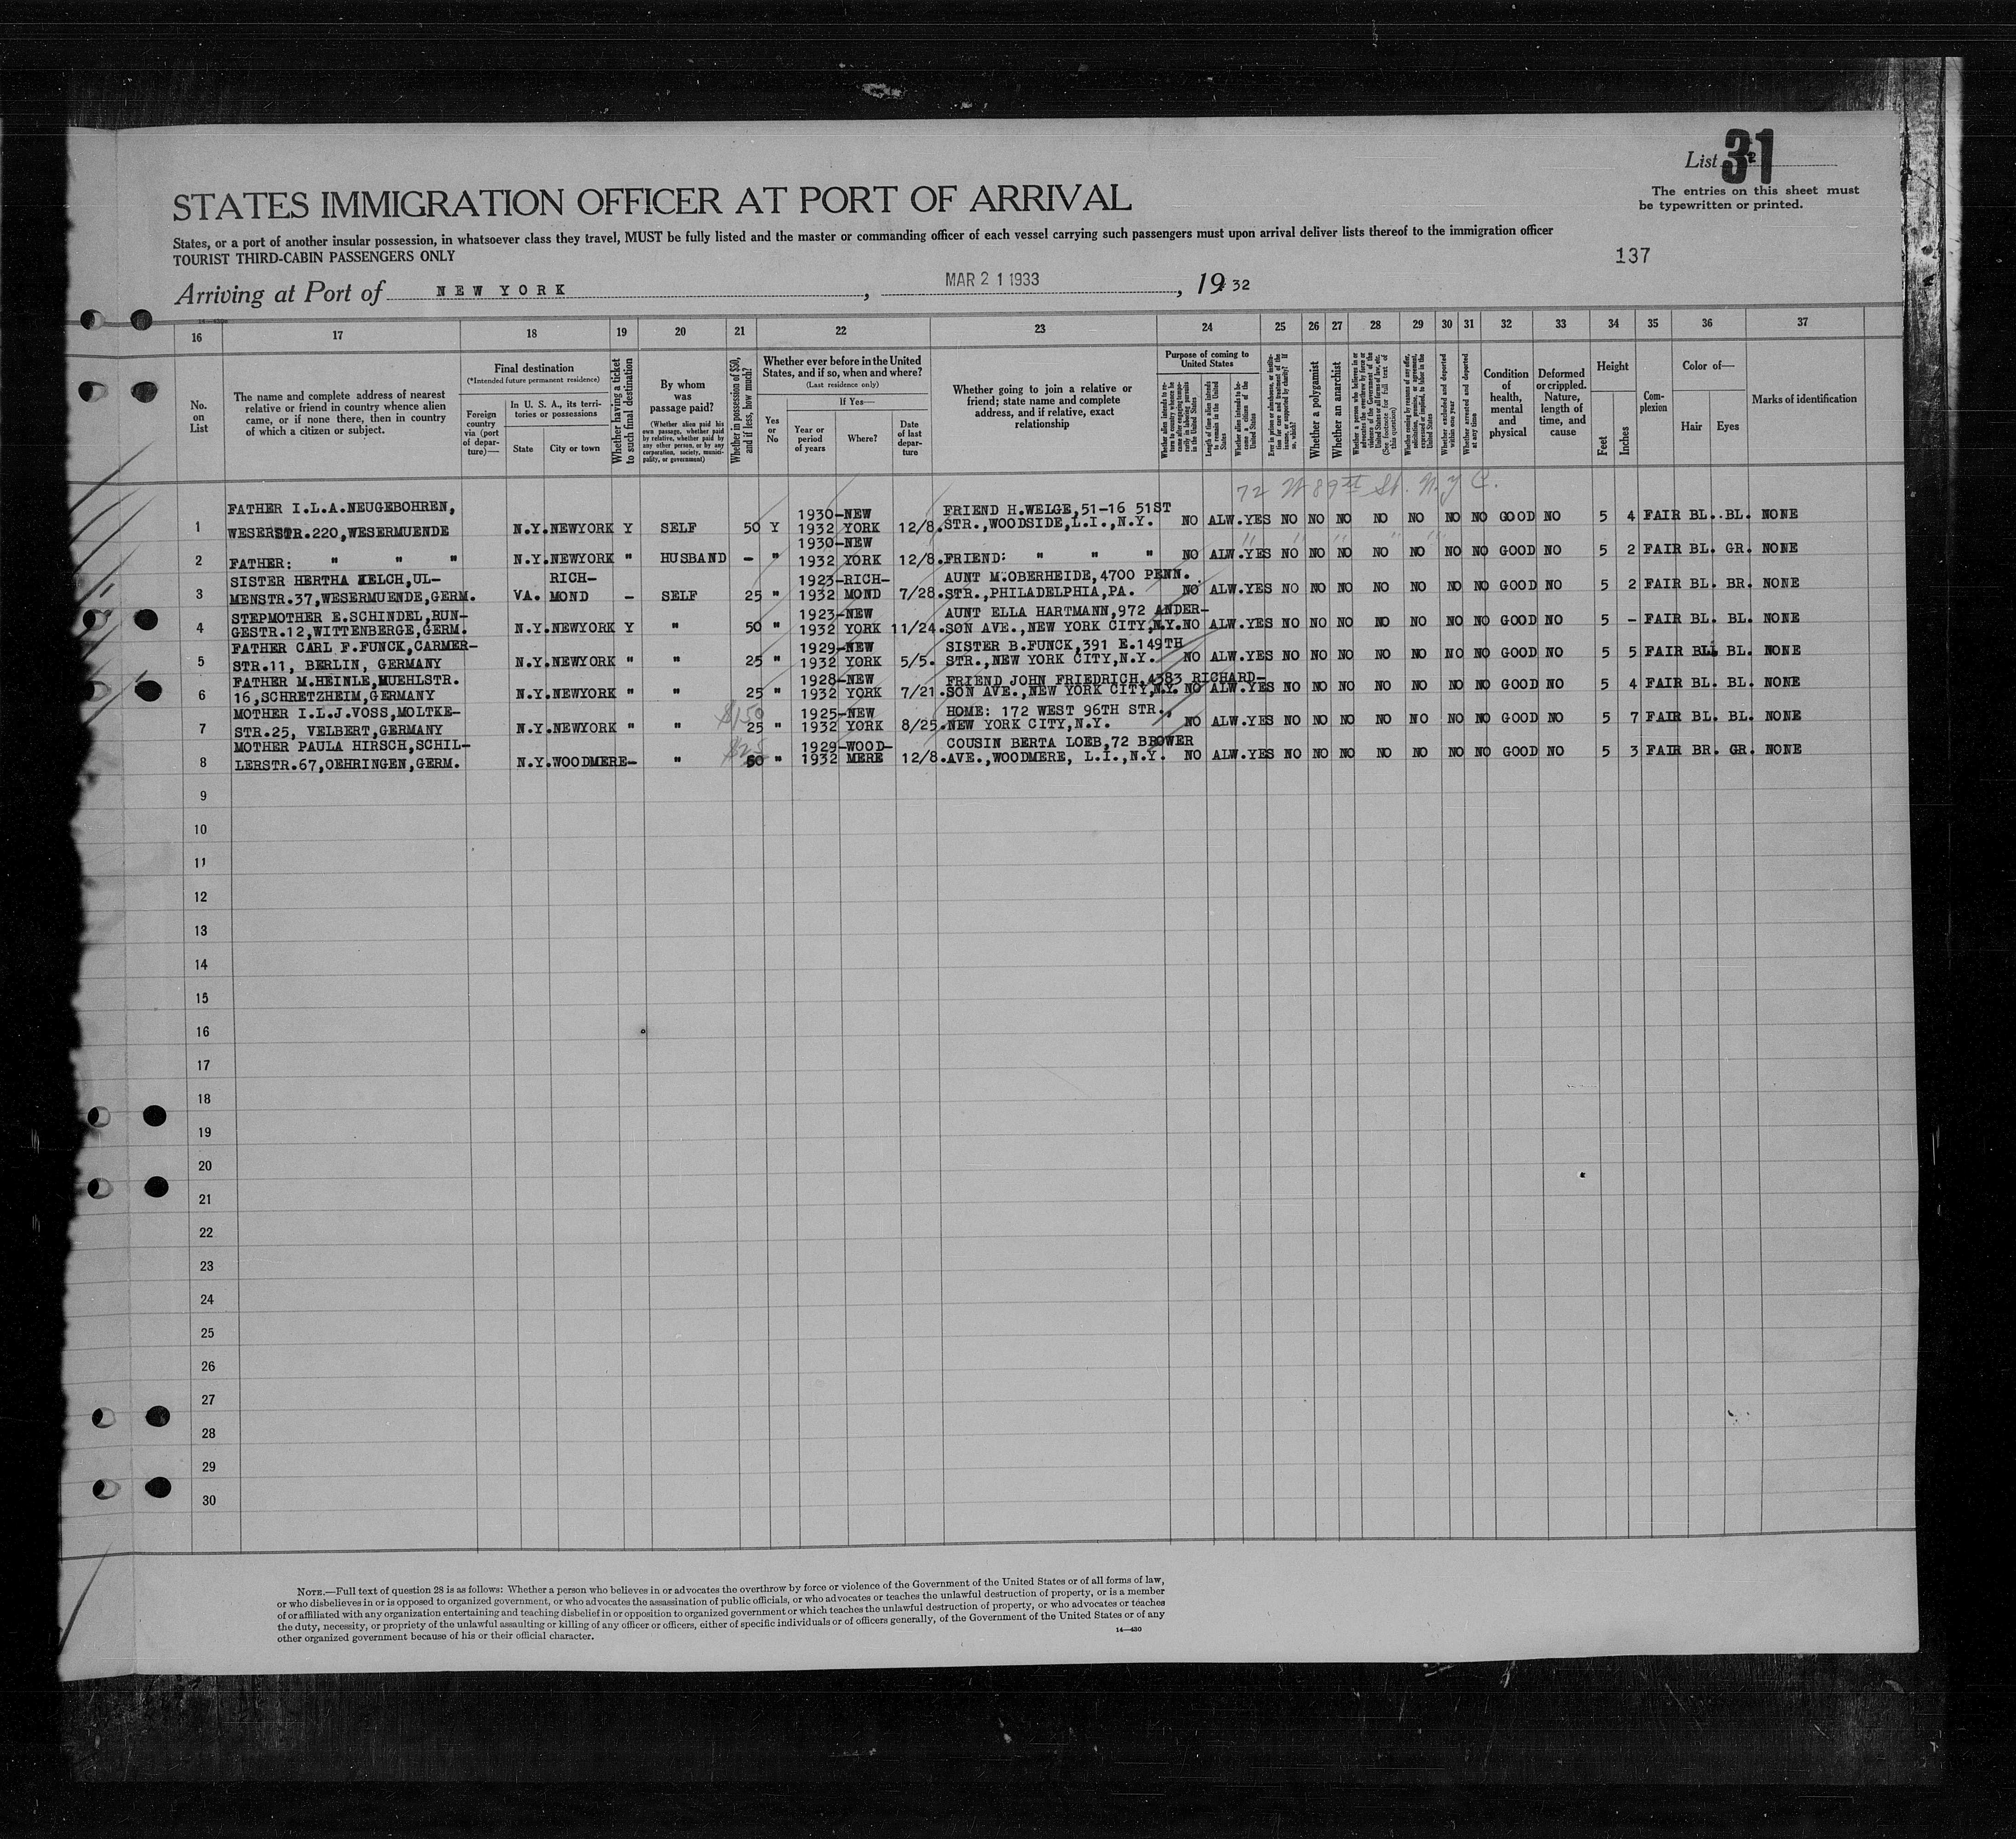 List 31
The entries on this sheet must
be typewritten or printed.
STATES IMMIGRATION OFFICER AT PORT OF ARRIVAL
States, or a port of another insular possession, in whatsoever class they travel, MUST be fully listed and the master or commanding officer of each vessel carrying such passengers must upon arrival deliver lists thereof to the immigration officer
TOURIST THIRD-CABIN PASSENGERS ONLY
137
Arriving at Port of NEW YORK, MAR 21 1933, 19 32
16 17 18 19 20 21 22 23 24 25 26 27 28 29 30 31 32 33 34 35 36 37
No.
on
List
The name and complete address of nearest
relative or friend in country whence alien
came, or if none there, then in country
of which a citizen or subject.
Final destination
(*Intended future permanent residence)
Foreign
country
via (port
of depar-
ture)—
In U. S. A., its terri-
tories or possessions
State
City or town
Whether having a ticket
to such final destination
By whom
was
passage paid?
(Whether alien paid his
own passage, whether paid
by relative, whether paid by
any other person, or by any
corporation, society, munici-
pality, or government)
Whether in possession of $50,
and if less, how much?
Whether ever before in the United
States, and if so, when and where?
(Last residence only)
Yes
or
No
If Yes—
Year or
period
of years
Where?
Date
of last
depar-
ture
Whether going to join a relative or
friend; state name and complete
address, and if relative, exact
relationship
Purpose of coming to
United States
Whether alien intends to re-
turn to country whence he
came after engaging tempo-
rarily in laboring pursuits
in the United States
Length of time alien intends
to remain in the United
States
Whether alien intends to be-
come a citizen of the
United States
Ever in prison or almshouse, or institu-
tion for care and treatment of the
insane, or supported by charity? If
so, which?
Whether a polygamist
Whether an anarchist
Whether a person who believes in or
advocates the overthrow by force or
violence of the Government of the
United States or all forms of law, etc.
(See footnote for full text of
this question)
Whether coming by reason of any offer,
solicitation, promise, or agreement,
expressed or implied, to labor in the
United States
Whether excluded and deported
within one year
Whether arrested and deported
at any time
Condition
of
health,
mental
and
physical
Deformed
or crippled.
Nature,
length of
time, and
cause
Height
Feet
Inches
Com-
plexion
Color of—
Hair
Eyes
Marks of identification
72 W 89th St. N.Y C.
FATHER I.L.A.NEUGEBOHREN, 1930-NEW FRIEND H.WELGE,51-16 51ST
1 WESERSTR.220,WESERMUENDE N.Y. NEWYORK Y SELF 50 Y 1932 YORK 12/8. STR.,WOODSIDE,L.I.,N.Y. NO ALW. YES NO NO NO NO NO NO NO GOOD NO 5 4 FAIR BL. BL. NONE
1930-NEW
2 FATHER: " " " N.Y. NEWYORK " HUSBAND - " 1932 YORK 12/8. FRIEND: " " " NO ALW. YES NO NO NO NO NO NO NO GOOD NO 5 2 FAIR BL. GR. NONE
SISTER HERTHA KELCH,UL- RICH- 1923-RICH- AUNT M.OBERHEIDE,4700 PENN.
3 MENSTR.37,WESERMUENDE,GERM. VA. MOND - SELF 25 " 1932 MOND 7/28. STR.,PHILADELPHIA,PA. NO ALW. YES NO NO NO NO NO NO NO GOOD NO 5 2 FAIR BL. BR. NONE
STEPMOTHER E.SCHINDEL,RUN- 1923-NEW AUNT ELLA HARTMANN,972 ANDER-
4 GESTR.12,WITTENBERGE,GERM. N.Y. NEWYORK Y " 50 " 1932 YORK 11/24. SON AVE.,NEW YORK CITY,N.Y. NO ALW. YES NO NO NO NO NO NO NO GOOD NO 5 - FAIR BL. BL. NONE
FATHER CARL F.FUNCK,CARMER- 1929-NEW SISTER B.FUNCK,391 E.149TH
5 STR.11, BERLIN, GERMANY N.Y. NEWYORK " " 25 " 1932 YORK 5/5. STR.,NEW YORK CITY,N.Y. NO ALW. YES NO NO NO NO NO NO NO GOOD NO 5 5 FAIR BL. BL. NONE
FATHER M.HEINLE,MUEHLSTR. 1928-NEW FRIEND JOHN FRIEDRICH,4383 RICHARD-
6 16,SCHRETZHEIM,GERMANY N.Y. NEWYORK " " 25 " 1932 YORK 7/21. SON AVE.,NEW YORK CITY,N.Y. NO ALW. YES NO NO NO NO NO NO NO GOOD NO 5 4 FAIR BL. BL. NONE
MOTHER I.L.J.VOSS,MOLTKE- $150 1925-NEW HOME: 172 WEST 96TH STR.,
7 STR.25, VELBERT,GERMANY N.Y. NEWYORK " " 25 " 1932 YORK 8/25. NEW YORK CITY,N.Y. NO ALW. YES NO NO NO NO NO NO NO GOOD NO 5 7 FAIR BL. BL. NONE
MOTHER PAULA HIRSCH,SCHIL- $25 1929-WOOD- COUSIN BERTA LOEB,72 BROWER
8 LERSTR.67,OEHRINGEN,GERM. N.Y. WOODMERE- " 50 " 1932 MERE 12/8. AVE.,WOODMERE, L.I.,N.Y. NO ALW. YES NO NO NO NO NO NO NO GOOD NO 5 3 FAIR BR. GR. NONE
9
10
11
12
13
14
15
16
17
18
19
20
21
22
23
24
25
26
27
28
29
30
NOTE.—Full text of question 28 is as follows: Whether a person who believes in or advocates the overthrow by force or violence of the Government of the United States or of all forms of law,
or who disbelieves in or is opposed to organized government, or who advocates the assassination of public officials, or who advocates or teaches the unlawful destruction of property, or is a member
of or affiliated with any organization entertaining and teaching disbelief in or opposition to organized government or which teaches the unlawful destruction of property, or who advocates or teaches
the duty, necessity, or propriety of the unlawful assaulting or killing of any officer or officers, either of specific individuals or of officers generally, of the Government of the United States or of any
other organized government because of his or their official character.
14—430